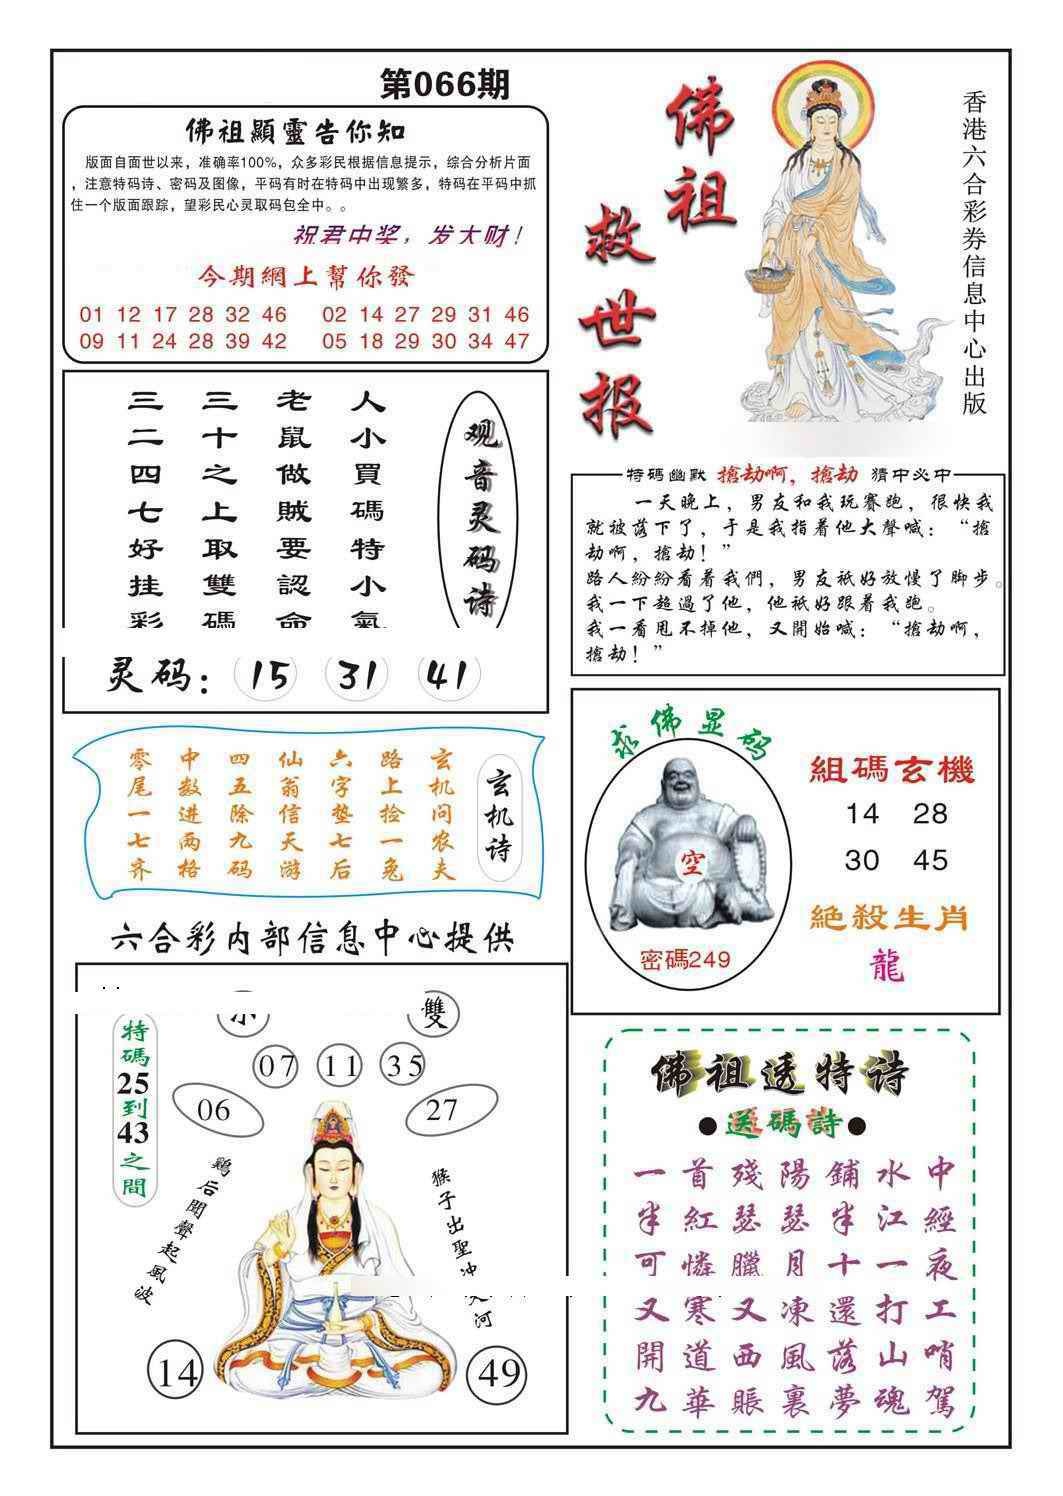 第066期
佛祖顯靈告你知
版面自面世以来，准确率100%，众多彩民根据信息提示，综合分析片面
，注意特码诗、密码及图像，平码有时在特码中出现繁多，特码在平码中抓
住一个版面跟踪，望彩民心灵取码包全中。。
祝君中奖，发大财！
今期網上幫你發
01 12 17 28 32 46 02 14 27 29 31 46
09 11 24 28 39 42 05 18 29 30 34 47
佛祖
救世报
香港六合彩券信息中心出版
观音灵码诗
人小買碼特小氣
老鼠做賊要認命
三十之上取雙碼
三二四七好挂彩
灵码：15 31 41
特碼幽默 搶劫啊，搶劫 猜中必中
一天晚上，男友和我玩賽跑，很快我
就被落下了，于是我指着他大聲喊：“搶
劫啊，搶劫！”
路人紛紛看着我們，男友祇好放慢了脚步。
我一下超過了他，他祇好跟着我跑。
我一看甩不掉他，又開始喊：“搶劫啊，
搶劫！”
玄机诗
玄机问农夫
路上捡一兔
六字垫七后
仙翁信天游
四五除九码
中数进两格
零尾一七齐
求佛显码
空
密碼249
組碼玄機
14 28
30 45
絕殺生肖
龍
六合彩内部信息中心提供
特碼25到43之間
雙
07 11 35
06 27
鷄后聞聲起風波
猴子出聖冲天河
14 49
佛祖透特诗
●送碼詩●
一首殘陽鋪水中
半紅瑟瑟半江經
可憐臘月十一夜
又寒又凍還打工
開道西風落山哨
九華賬裏夢魂駕